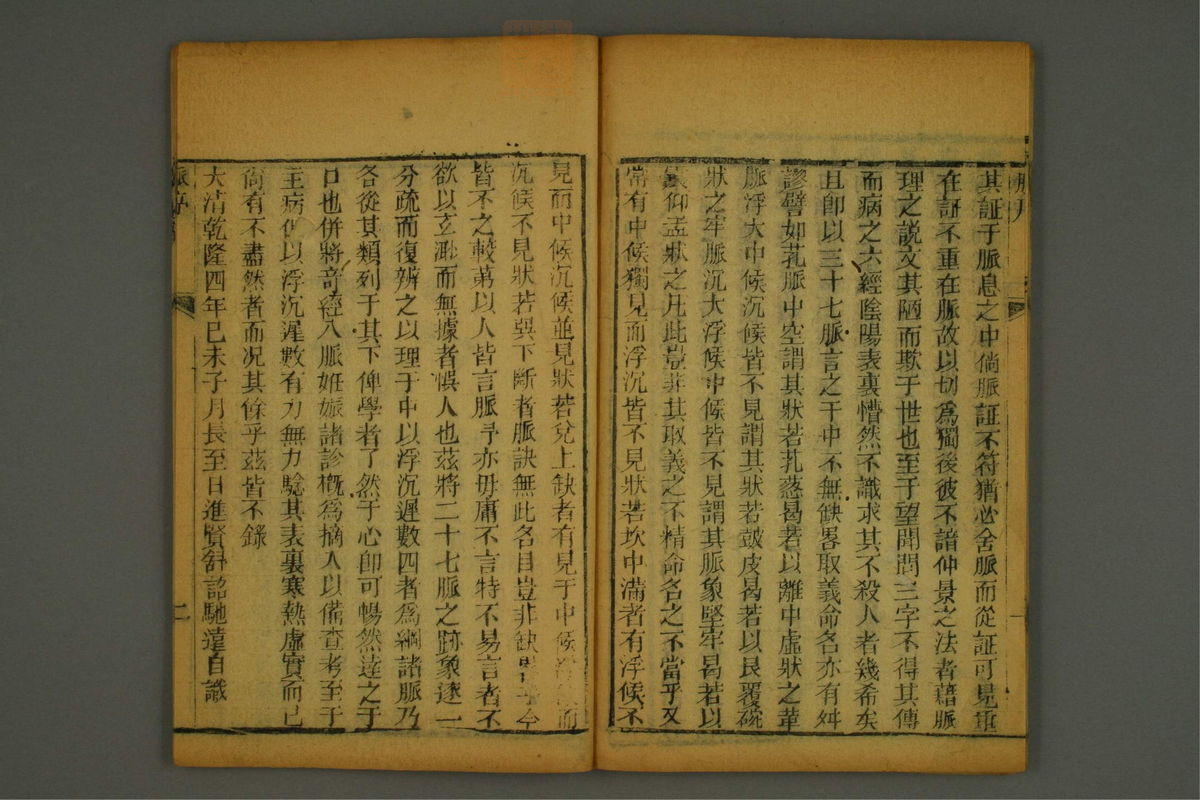 其証于脈息之中倘脈証不符猶必舍脈而從証可見重
在証不重在脈故以切為獨後彼不諳仲景之法者藉脈
理之説文其陋而欺于世也至于望聞問三字不得其傳
而病之六經陰陽表裏懵然不識求其不殺人者幾希矣
且卽以三十七脈言之于中不無缺畧取義命名亦有舛
謬譬如芤脈中空謂其狀若芤葱曷若以離中虛狀之革
脈浮大中候沉候皆不見謂其狀若皷皮曷若以艮覆碗
狀之牢脈沉大浮候中候皆不見謂其脈象堅牢曷若以
震仰盂狀之凡此豈非其取義之不精命名之不當乎又
常有中候獨見而浮沉皆不見狀若坎中滿者有浮候不
見而中候沉候並見狀若兌上缺者有見于中候而
沉候不見狀若巽下斷者脈訣無此名目豈非缺乎今
皆不之較第以人皆言脈予亦毋庸不言特不易言者不
欲以玄渺而無據者悞人也茲將二十七脈之跡象逐一
分疏而復辨之以理于中以浮沉遲數四者為綱諸脈乃
各從其類列于其下俾學者了然于心卽可暢然達之于
口也併將奇經八脈姙娠諸診槪為摘入以備查考至于
主病但以浮沉遲數有力無力騐其表裏寒熱虛實而已
尙有不盡然者而况其餘乎茲皆不錄
大清乾隆四年己未子月長至日進賢舒詔馳遠自識
二